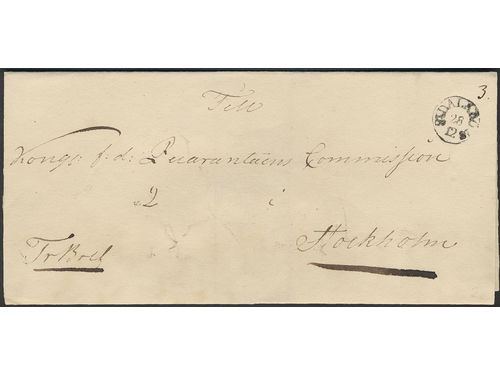 3.
Till
Kongl: f: d: Quarantäins Commission
i
Stockholm
Fr Bref
28
12